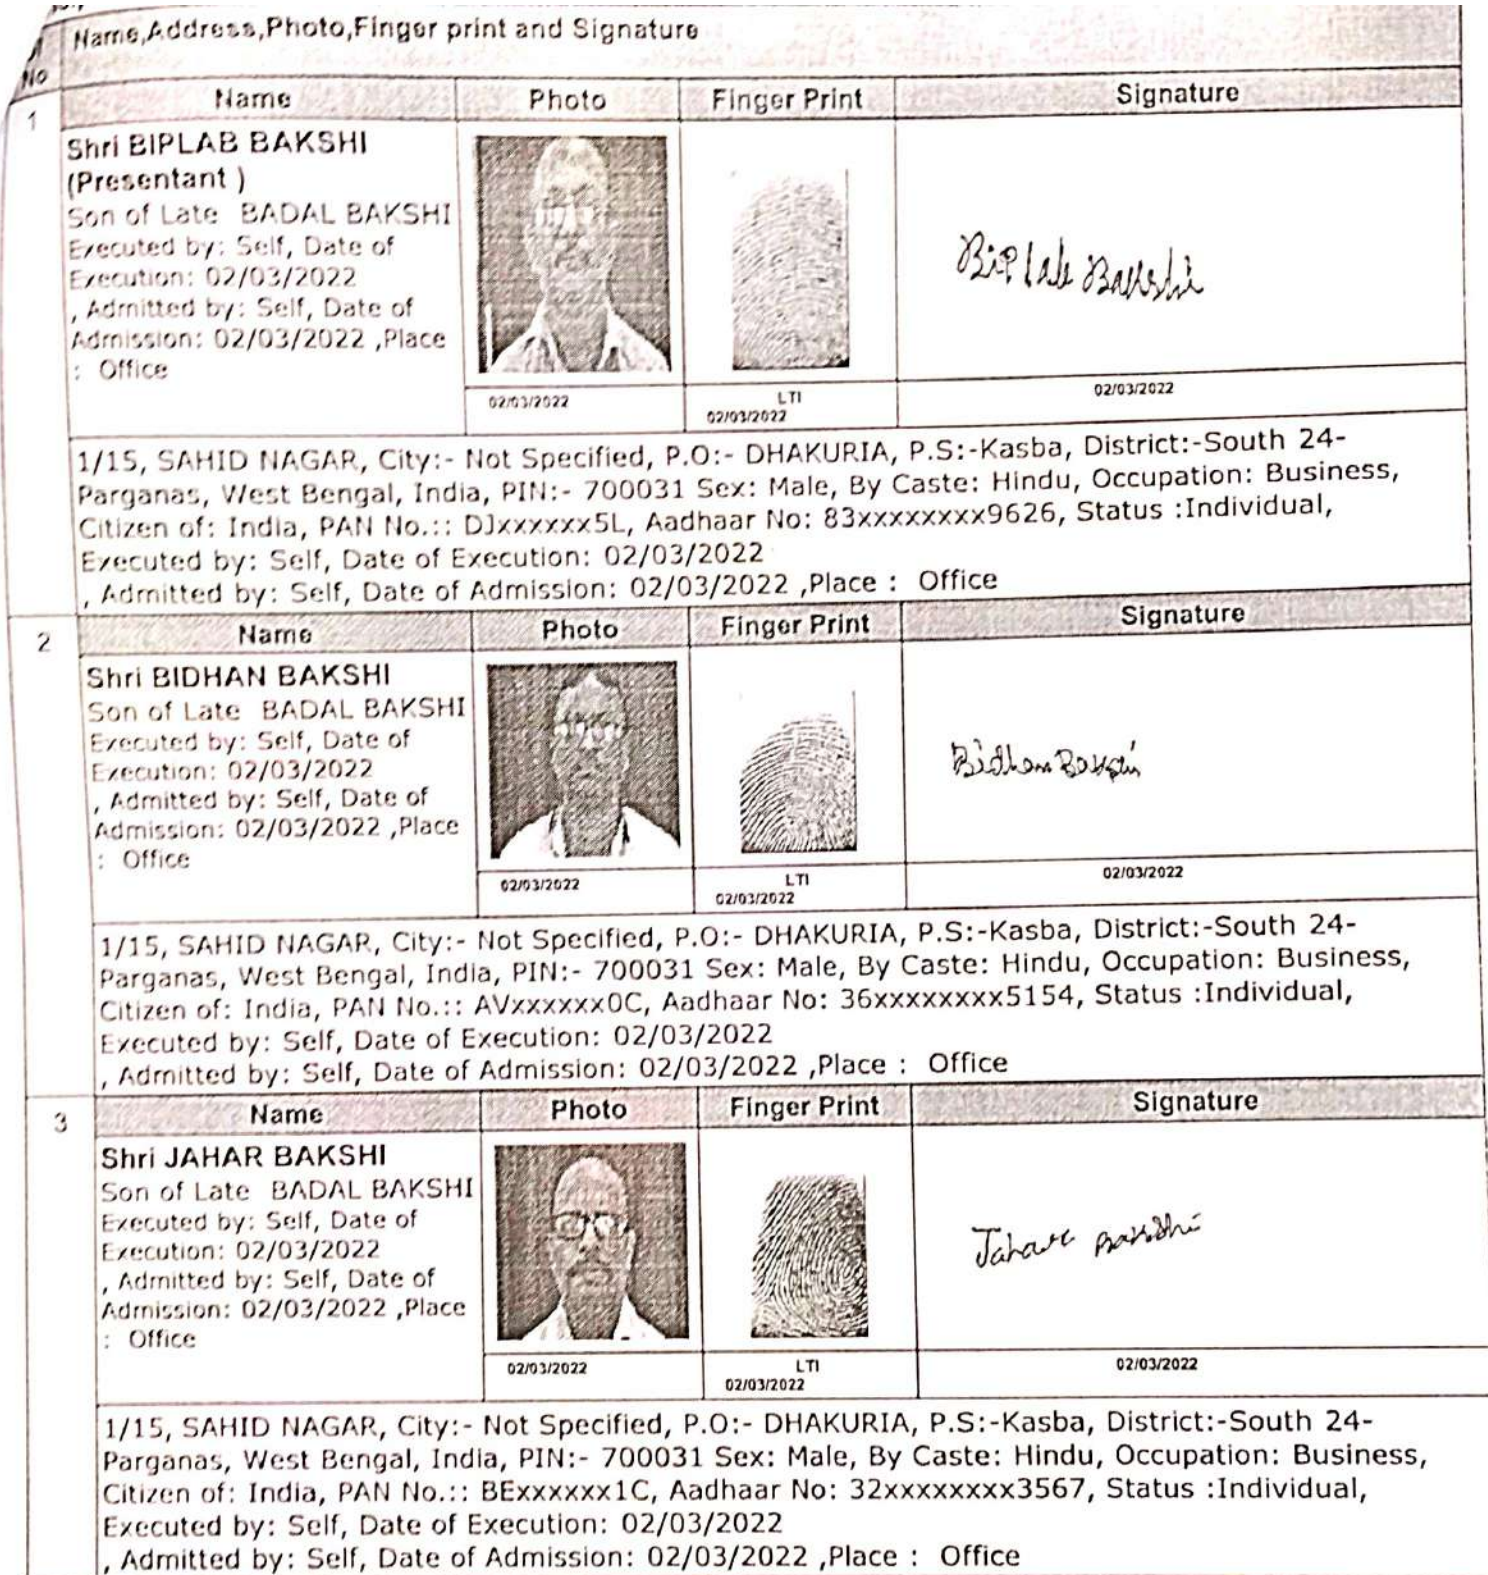 No
Name,Address,Photo,Finger print and Signature
Name Photo Finger Print Signature
1
Shri BIPLAB BAKSHI
(Presentant )
Son of Late BADAL BAKSHI
Executed by: Self, Date of
Execution: 02/03/2022
, Admitted by: Self, Date of
Admission: 02/03/2022 ,Place
: Office
Biplab Bakshi
02/03/2022 LTI 02/03/2022
02/03/2022
1/15, SAHID NAGAR, City:- Not Specified, P.O:- DHAKURIA, P.S:-Kasba, District:-South 24-
Parganas, West Bengal, India, PIN:- 700031 Sex: Male, By Caste: Hindu, Occupation: Business,
Citizen of: India, PAN No.:: DJxxxxxx5L, Aadhaar No: 83xxxxxxxx9626, Status :Individual,
Executed by: Self, Date of Execution: 02/03/2022
, Admitted by: Self, Date of Admission: 02/03/2022 ,Place : Office
2
Name Photo Finger Print Signature
Shri BIDHAN BAKSHI
Son of Late BADAL BAKSHI
Executed by: Self, Date of
Execution: 02/03/2022
, Admitted by: Self, Date of
Admission: 02/03/2022 ,Place
: Office
Bidhan Bakshi
02/03/2022 LTI 02/03/2022
02/03/2022
1/15, SAHID NAGAR, City:- Not Specified, P.O:- DHAKURIA, P.S:-Kasba, District:-South 24-
Parganas, West Bengal, India, PIN:- 700031 Sex: Male, By Caste: Hindu, Occupation: Business,
Citizen of: India, PAN No.:: AVxxxxxx0C, Aadhaar No: 36xxxxxxxx5154, Status :Individual,
Executed by: Self, Date of Execution: 02/03/2022
, Admitted by: Self, Date of Admission: 02/03/2022 ,Place : Office
3
Name Photo Finger Print Signature
Shri JAHAR BAKSHI
Son of Late BADAL BAKSHI
Executed by: Self, Date of
Execution: 02/03/2022
, Admitted by: Self, Date of
Admission: 02/03/2022 ,Place
: Office
Jahar Bakshi
02/03/2022 LTI 02/03/2022
02/03/2022
1/15, SAHID NAGAR, City:- Not Specified, P.O:- DHAKURIA, P.S:-Kasba, District:-South 24-
Parganas, West Bengal, India, PIN:- 700031 Sex: Male, By Caste: Hindu, Occupation: Business,
Citizen of: India, PAN No.:: BExxxxxx1C, Aadhaar No: 32xxxxxxxx3567, Status :Individual,
Executed by: Self, Date of Execution: 02/03/2022
, Admitted by: Self, Date of Admission: 02/03/2022 ,Place : Office